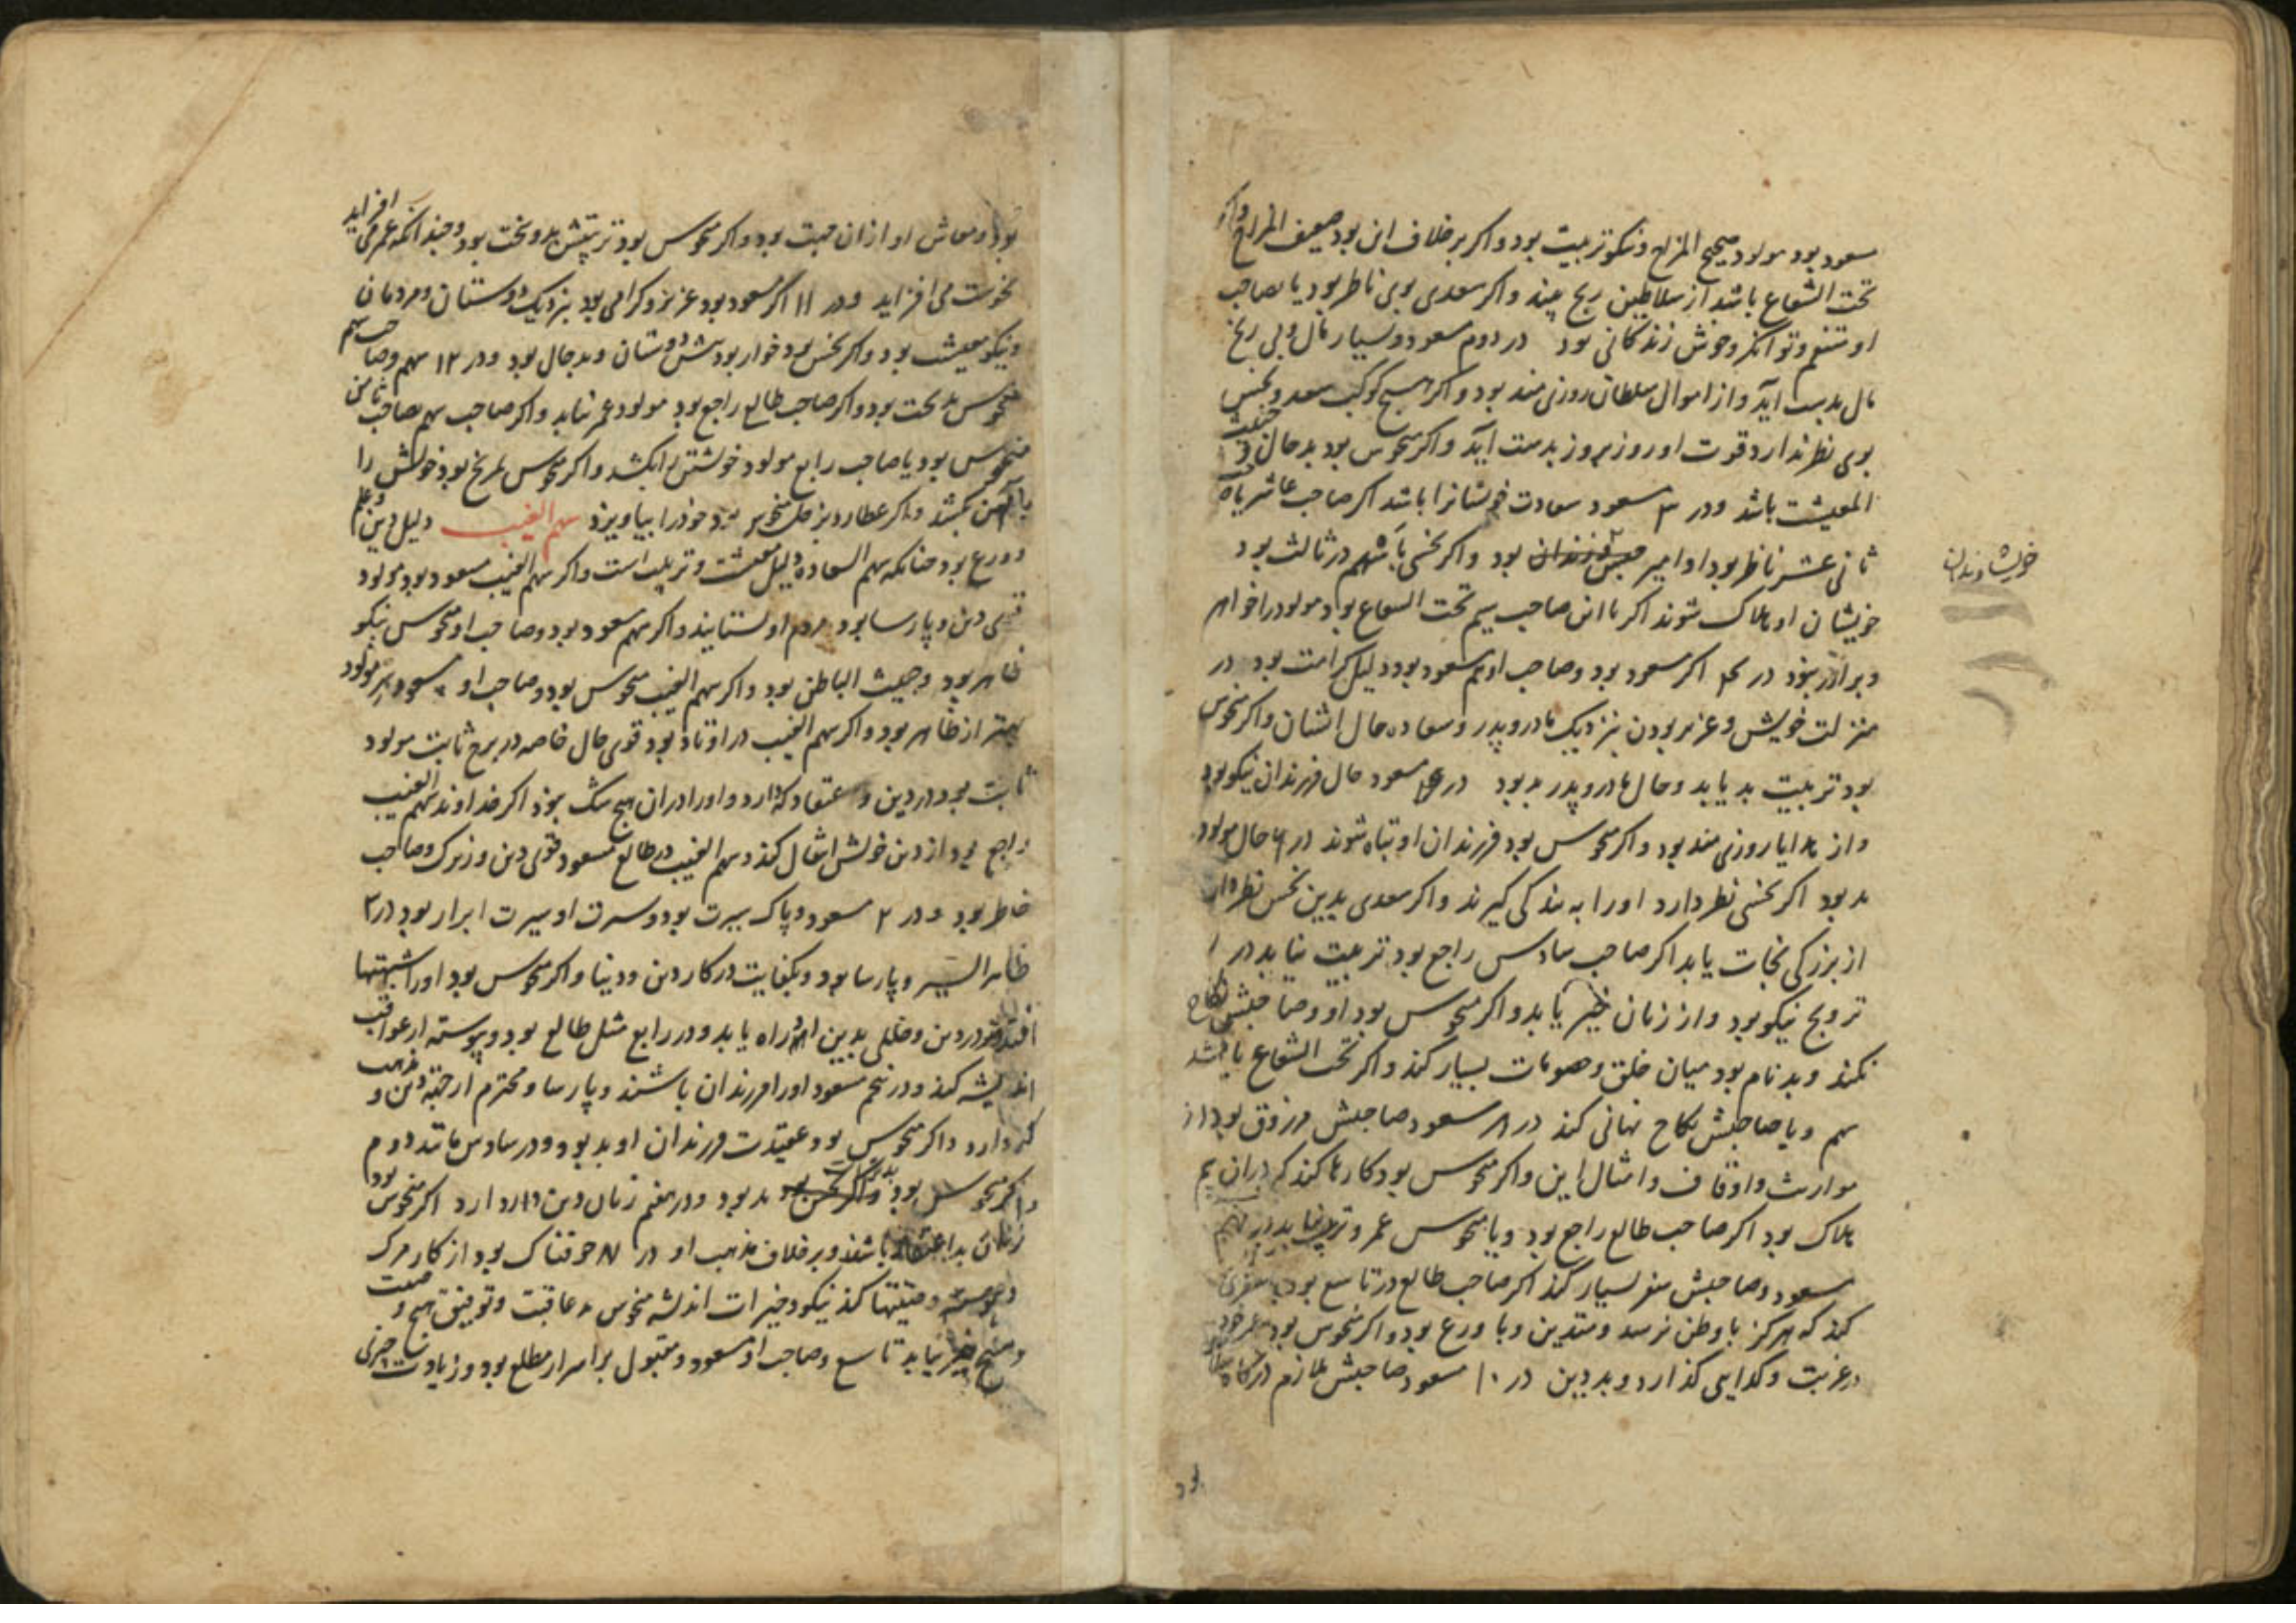 مسعود بود مولود صحیح المزاج و نیکو تربیت بود و اکر بر خلاف این بود ضعیف المزاج و اکر
تحت الشعاع باشد از سلاطین رنج بیند و اکر سعدی بوی ناظر بود یا بصاحب
او متنعم و توانکر و خوش زندکانی بود در دوم مسعود و بسیار مال و بی رنج
مال بدست آید و از اموال سلطان روزی مند بود و اکر هیچ کوکب سعد و نحس
بوی نظر ندارد قوت او روز بروز بدست آید و اکر منحوس بود بد حال و
المعیشت باشد و در ۳ مسعود سعادت خویشانرا باشد اکر صاحب عاشر یا
ثانی عشر ناظر بود او امیر بود و اکر نحسی با سهم در ثالث بود
خویشاوندان
خویشان او هلاک شوند اکر با این صاحب سهم تحت الشعاع بود مولود را خواهر
و برادر نبود در ۴ اکر مسعود بود و صاحب او هم مسعود بود دلیل کرامت بود در
منزلت خویش و عزیز بودن بنزدیک مادر و پدر و سعاده حال ایشان و اکر منحوس
بود تربیت بد یابد و حال مادر و پدر بد بود در ۵ مسعود حال فرزندان نیکو بود
و از هدایا روزی مند بود و اکر منحوس بود فرزندان او تباه شوند در ۶ حال مولود
بد بود اکر نحسی نظر دارد او را به بندکی کیرند و اکر سعدی بدین نحس نظر دارد
از بزرکی نجات یابد اکر صاحب سادس راجع بود تربیت نیابد در
تزویج نیکو بود و از زنان خیر یابد و اکر منحوس بود او و صاحبش نکاح
نکند و بدنام بود میان خلق و خصومات بسیار کند و اکر تحت الشعاع باشد
سهم و یا صاحبش نکاح نهانی کند در ۸ مسعود صاحبش مرزوق بود از
مواریث و اوقاف و امثال این و اکر منحوس بود کارها کند که در آن بیم
هلاک بود اکر صاحب طالع راجع بود و یا منحوس عمر و تربیت نیابد در نهم
مسعود و صاحبش سفر بسیار کند اکر صاحب طالع در تاسع بود سفری
کند که هرکز با وطن نرسد و متدین و با ورع بود و اکر منحوس بود عمر خود
در غربت و کدایی کذارد و بد دین در ۱۰ مسعود صاحبش ملازم درکاه
بود
بود و معاش او از آن جهت بود و اکر منحوس بود تربیتش بد و بخت بود و چندانکه عمر می افزاید
نحوست می افزاید و در ۱۱ اکر مسعود بود عزیز و کرامی بود بنزدیک دوستان و مردمان
و نیکو معیشت بود و اکر نحس بود خوار بود پیش دوستان و بد حال بود و در ۱۲ سهم و صاحب سهم
منحوس بد بخت بود و اکر صاحب طالع راجع بود مولود عمر نیابد و اکر صاحب سهم بصاحب ثامن
منحوس بود یا صاحب رابع مولود خویشتن را بکشد و اکر منحوس بمریخ بود خویش را
باهن بکشد و اکر عطارد بزحل منحوس بود خود را بیاویزد سهم الغیب دلیل دین و علم
و ورع بود چنانکه سهم السعاده دلیل معیشت و تربیت است و اکر سهم الغیب مسعود بود مولود
قوی دین و پارسا بود مردم او را ستایند و اکر سهم مسعود بود و صاحب او منحوس نیکو
ظاهر بود و خبیث الباطن بود و اکر سهم الغیب منحوس بود و صاحب او مسعود سر مولود
بهتر از ظاهر بود و اکر سهم الغیب در اوتاد بود قوی حال خاصه در برج ثابت مولود
ثابت بود در دین و اعتقاد که دارد و او را در آن هیچ شک نبود اکر خداوند سهم الغیب
راجع بود از دین خویش انتقال کند و سهم الغیب در طالع مسعود قوی دین و زیرک و صاحب
خاطر بود و در ۲ مسعود و پاک سیرت بود و سیرت او سیرت ابرار بود در ۳
ظاهر السیر و پارسا بود و بکفایت در کار دین و دنیا و اکر منحوس بود او را شبهتها
افتد در دین و خللی بدین او راه یابد و در رابع مثل طالع بود و پیوسته از عواقب
اندیشه کند و در پنجم مسعود او را فرزندان باشند و پارسا و محترم از جهه دین و مذهب
که دارد و اکر منحوس بود عقیدت فرزندان او بد بود و در سادس مانند دوم
و اکر منحوس بود بد بود و در هفتم زنان دین دار دارد اکر منحوس بود
زنان بد اعتقاد باشند و بر خلاف مذهب او در ۸ خوفناک بود از کار مرک
و وصیتها کند نیکو و خیرات اندیشد منحوس بد عاقبت و توفیق هیچ وصیت
و هیچ خیر نیابد تاسع و صاحب او مسعود و مقبول بر اسرار مطلع بود و زیادت